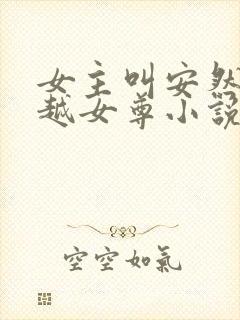 女主叫安然
越女尊小說
空空如氣